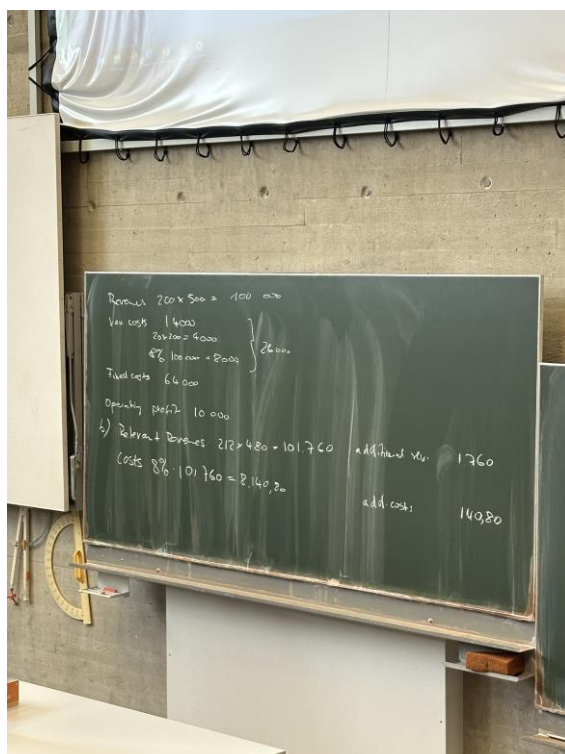 Revenues 200 x 500 = 100 000
Var. costs 14000
20x200 = 4000
8% 100 000 = 8000
26000
Fixed costs 64000
Operating profit 10 000
b) Relevant Revenues 212 x 480 = 101.760 additional rev. 1760
Costs 8% · 101.760 = 8.140,80
add. costs 140,80